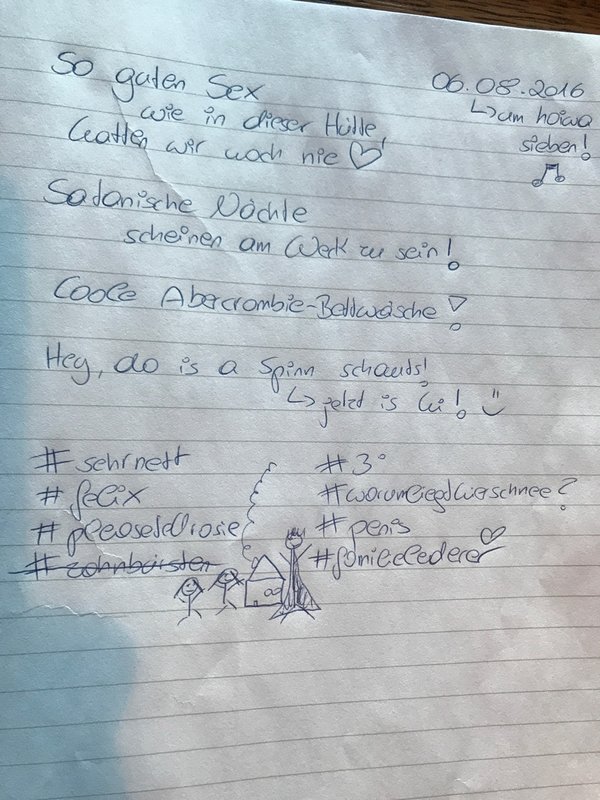 So guten Sex
06.08.2016
wie in dieser Hütte
↳ um hoiwa
hatten wir noch nie ♡!
sieben!
Satanische Mächte
scheinen am Werk zu sein!
Coole Abercrombie-Bettwäsche!
Hey, do is a Spinn schauts!
↳ jetzt is hi!
#sehrnett
#3°
#felix
#warumliegthierschnee?
#pleaseld
#penis
#zahnbürsten
#familielederer